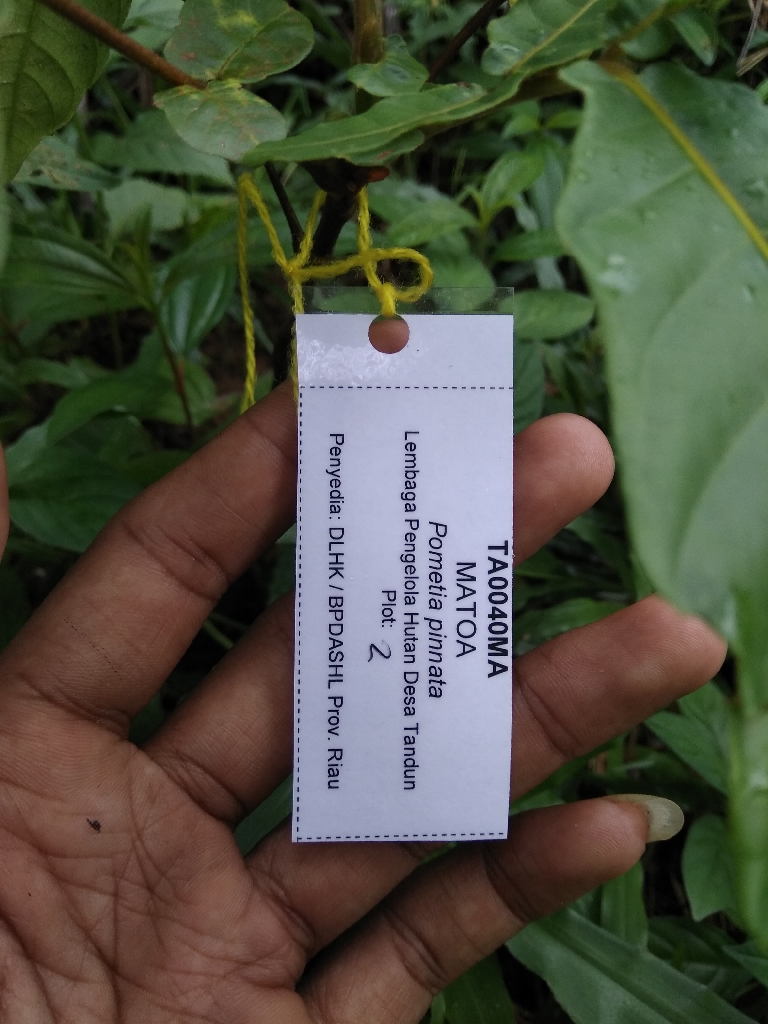 TA0040MA
MATOA
Pometia pinnata
Lembaga Pengelola Hutan Desa Tandun
Plot: 2
Penyedia: DLHK / BPDASHL Prov. Riau